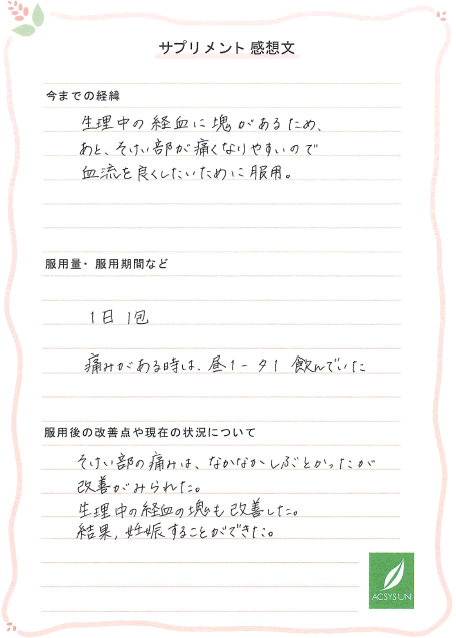 サプリメント 感想文
今までの経緯
生理中の経血に塊があるため、
あと、そけい部が痛くなりやすいので
血流を良くしたいために服用。
服用量・服用期間など
1日 1包
痛みがある時は、昼1-夕1 飲んでいた
服用後の改善点や現在の状況について
そけい部の痛みは、なかなかしぶとかったが
改善がみられた。
生理中の経血の塊も改善した。
結果,妊娠することができた。
ACSYSUN